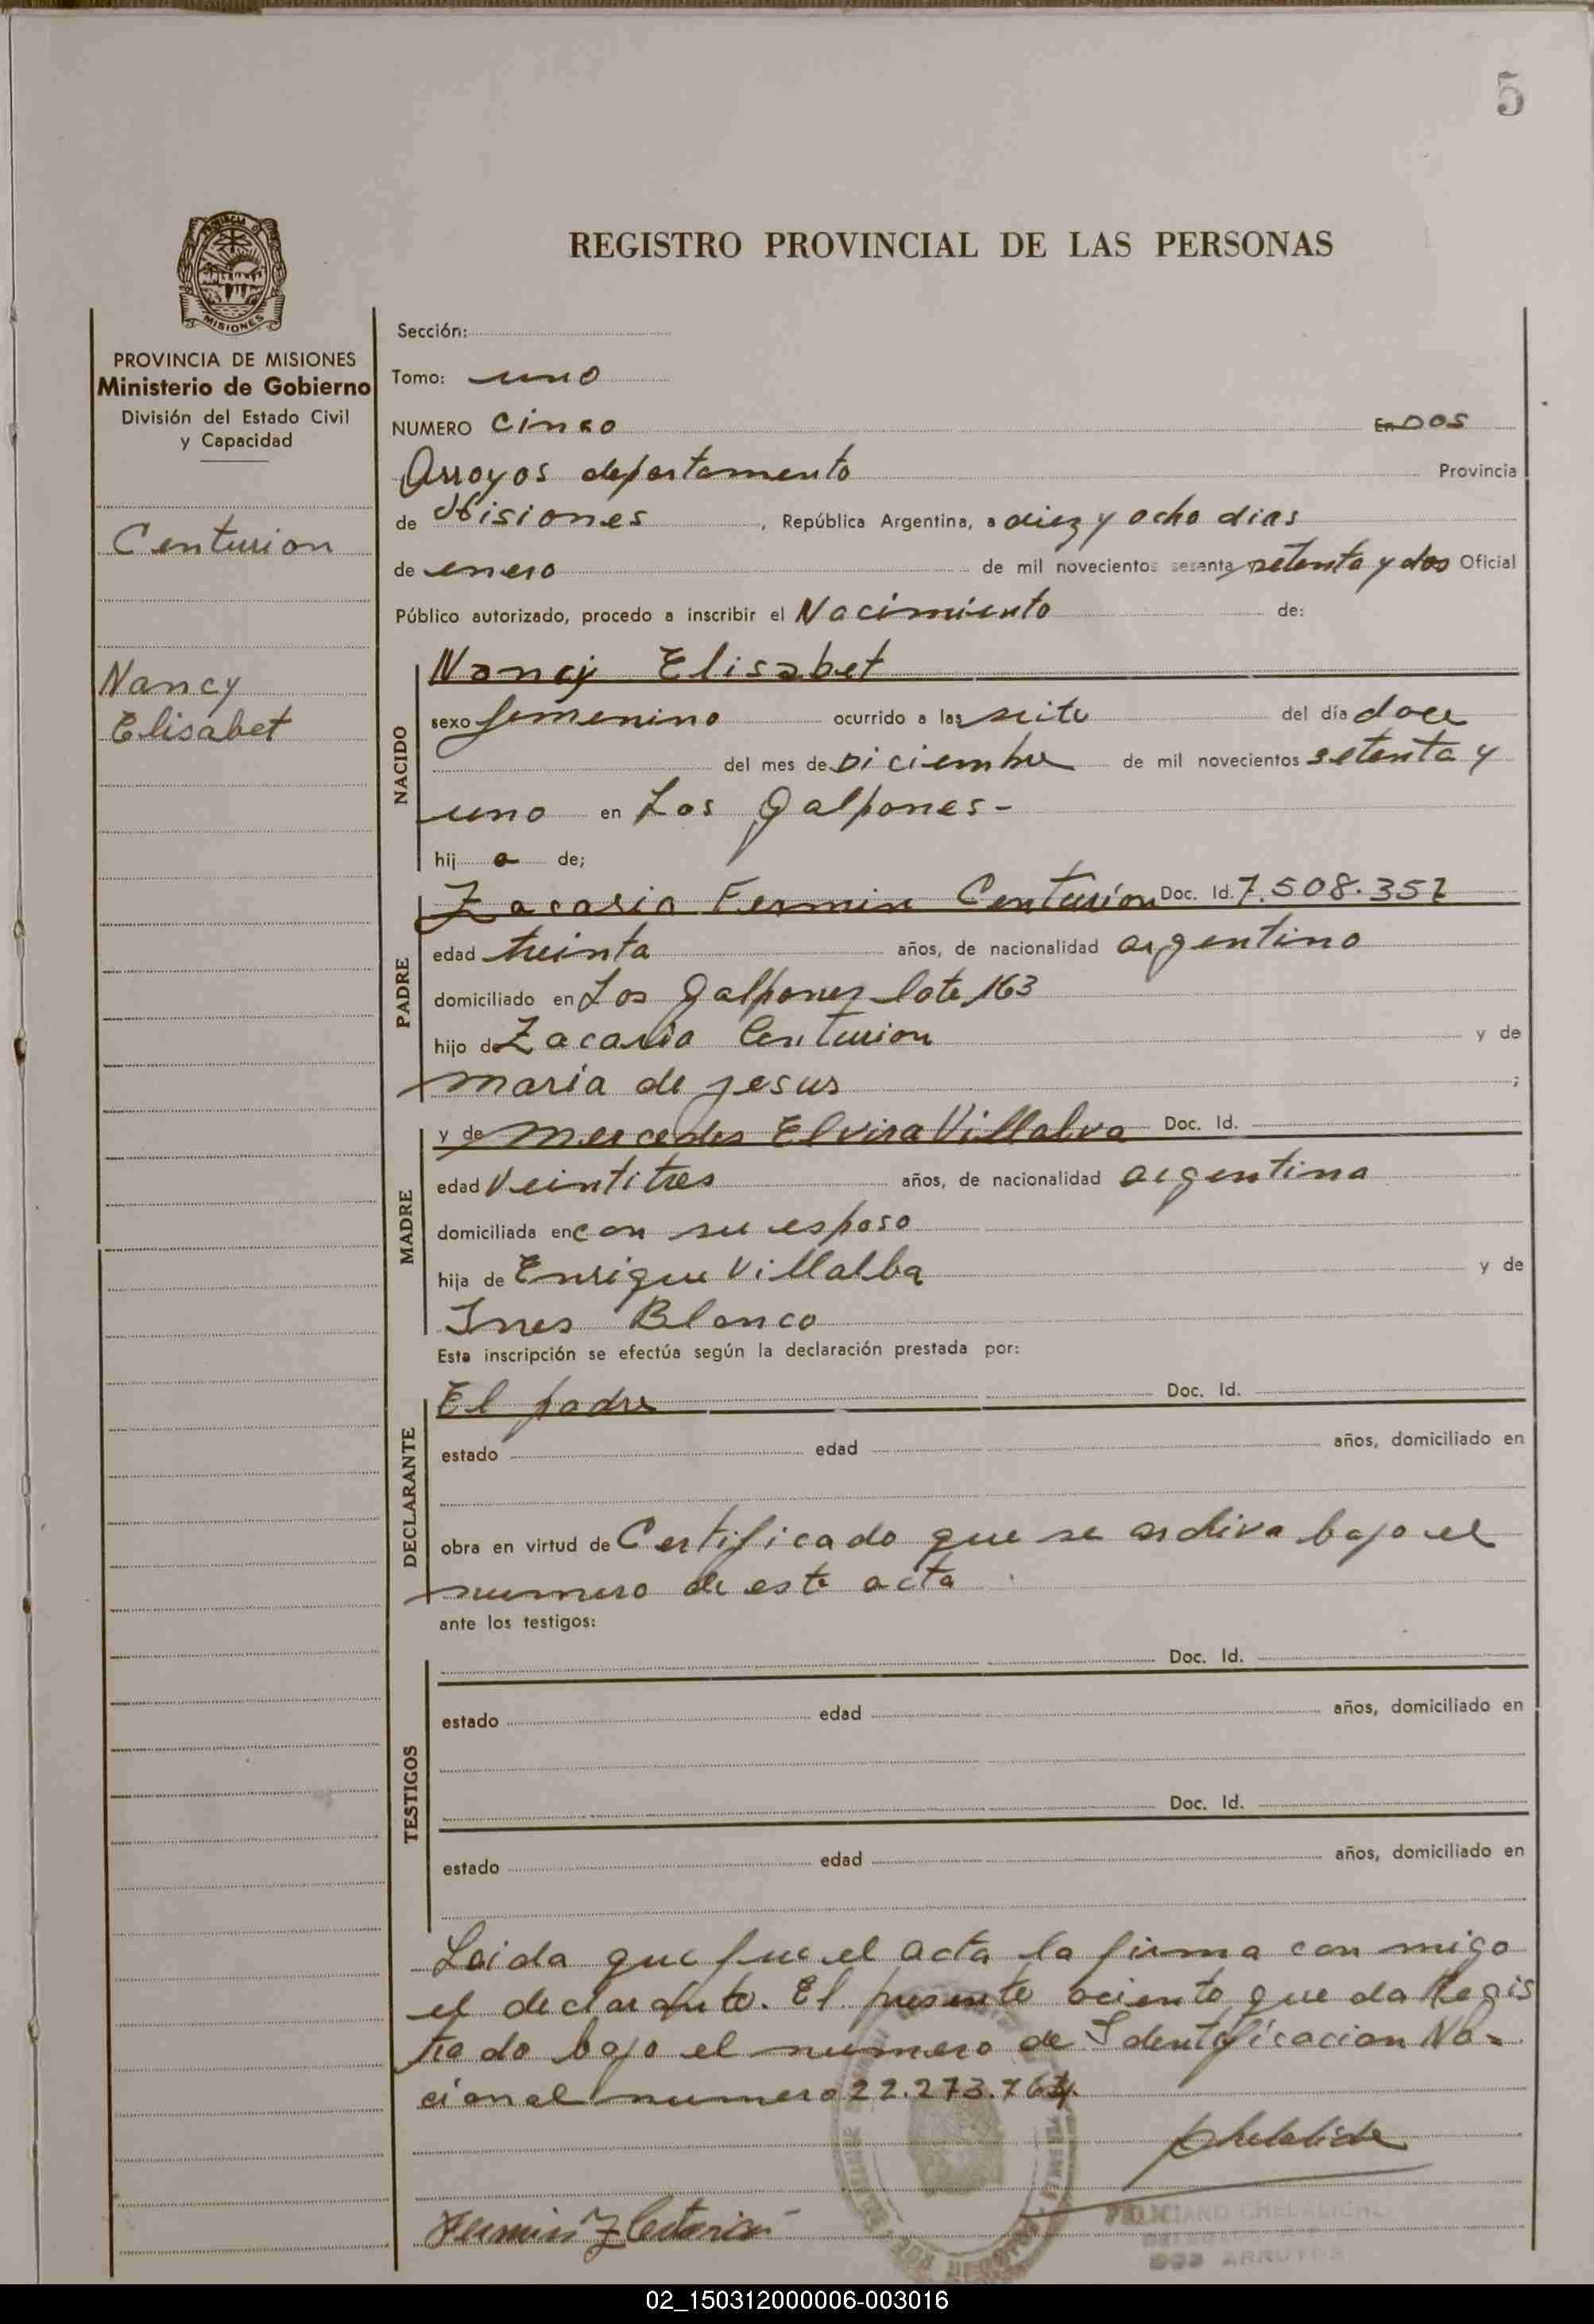 5
REGISTRO PROVINCIAL DE LAS PERSONAS
MISIONES
PROVINCIA DE MISIONES
Ministerio de Gobierno
División del Estado Civil
y Capacidad
Centurion
Nancy
Elisabet
Sección:
Tomo: uno
NUMERO Cinco En DOS
Arroyos departamento Provincia
de Misiones, República Argentina, a diez y ocho dias
de enero de mil novecientos sesenta setenta y dos Oficial
Público autorizado, procedo a inscribir el Nacimiento de:
NACIDO
Nancy Elisabet
sexo femenino ocurrido a las siete del día doce
del mes de Diciembre de mil novecientos setenta y
uno en Los Galpones-
hij a de;
PADRE
Zacaria Fermin Centurión Doc. Id. 7.508.357
edad treinta años, de nacionalidad argentino
domiciliado en Los Galpones lote 163
hijo de Zacaria Centurion y de
maria de jesus ;
MADRE
y de mercedes Elvira Villalva Doc. Id.
edad Veintitres años, de nacionalidad argentina
domiciliada en con su esposo
hija de Enrique Villalba y de
Ines Blanco
Esta inscripción se efectúa según la declaración prestada por:
DECLARANTE
El padre Doc. Id.
estado edad años, domiciliado en
obra en virtud de Certificado que se archiva bajo el
numero de este acta
ante los testigos:
TESTIGOS
Doc. Id.
estado edad años, domiciliado en
Doc. Id.
estado edad años, domiciliado en
Leida que fue el acta la firma con migo
el declarante. El presente aciento que da Regis
trado bajo el numero de Identificacion Na=
cional numero 22.273.764.
Fermin Z Centurion
FELICIANO CHELALICHE
DOS ARROYOS
02_150312000006-003016